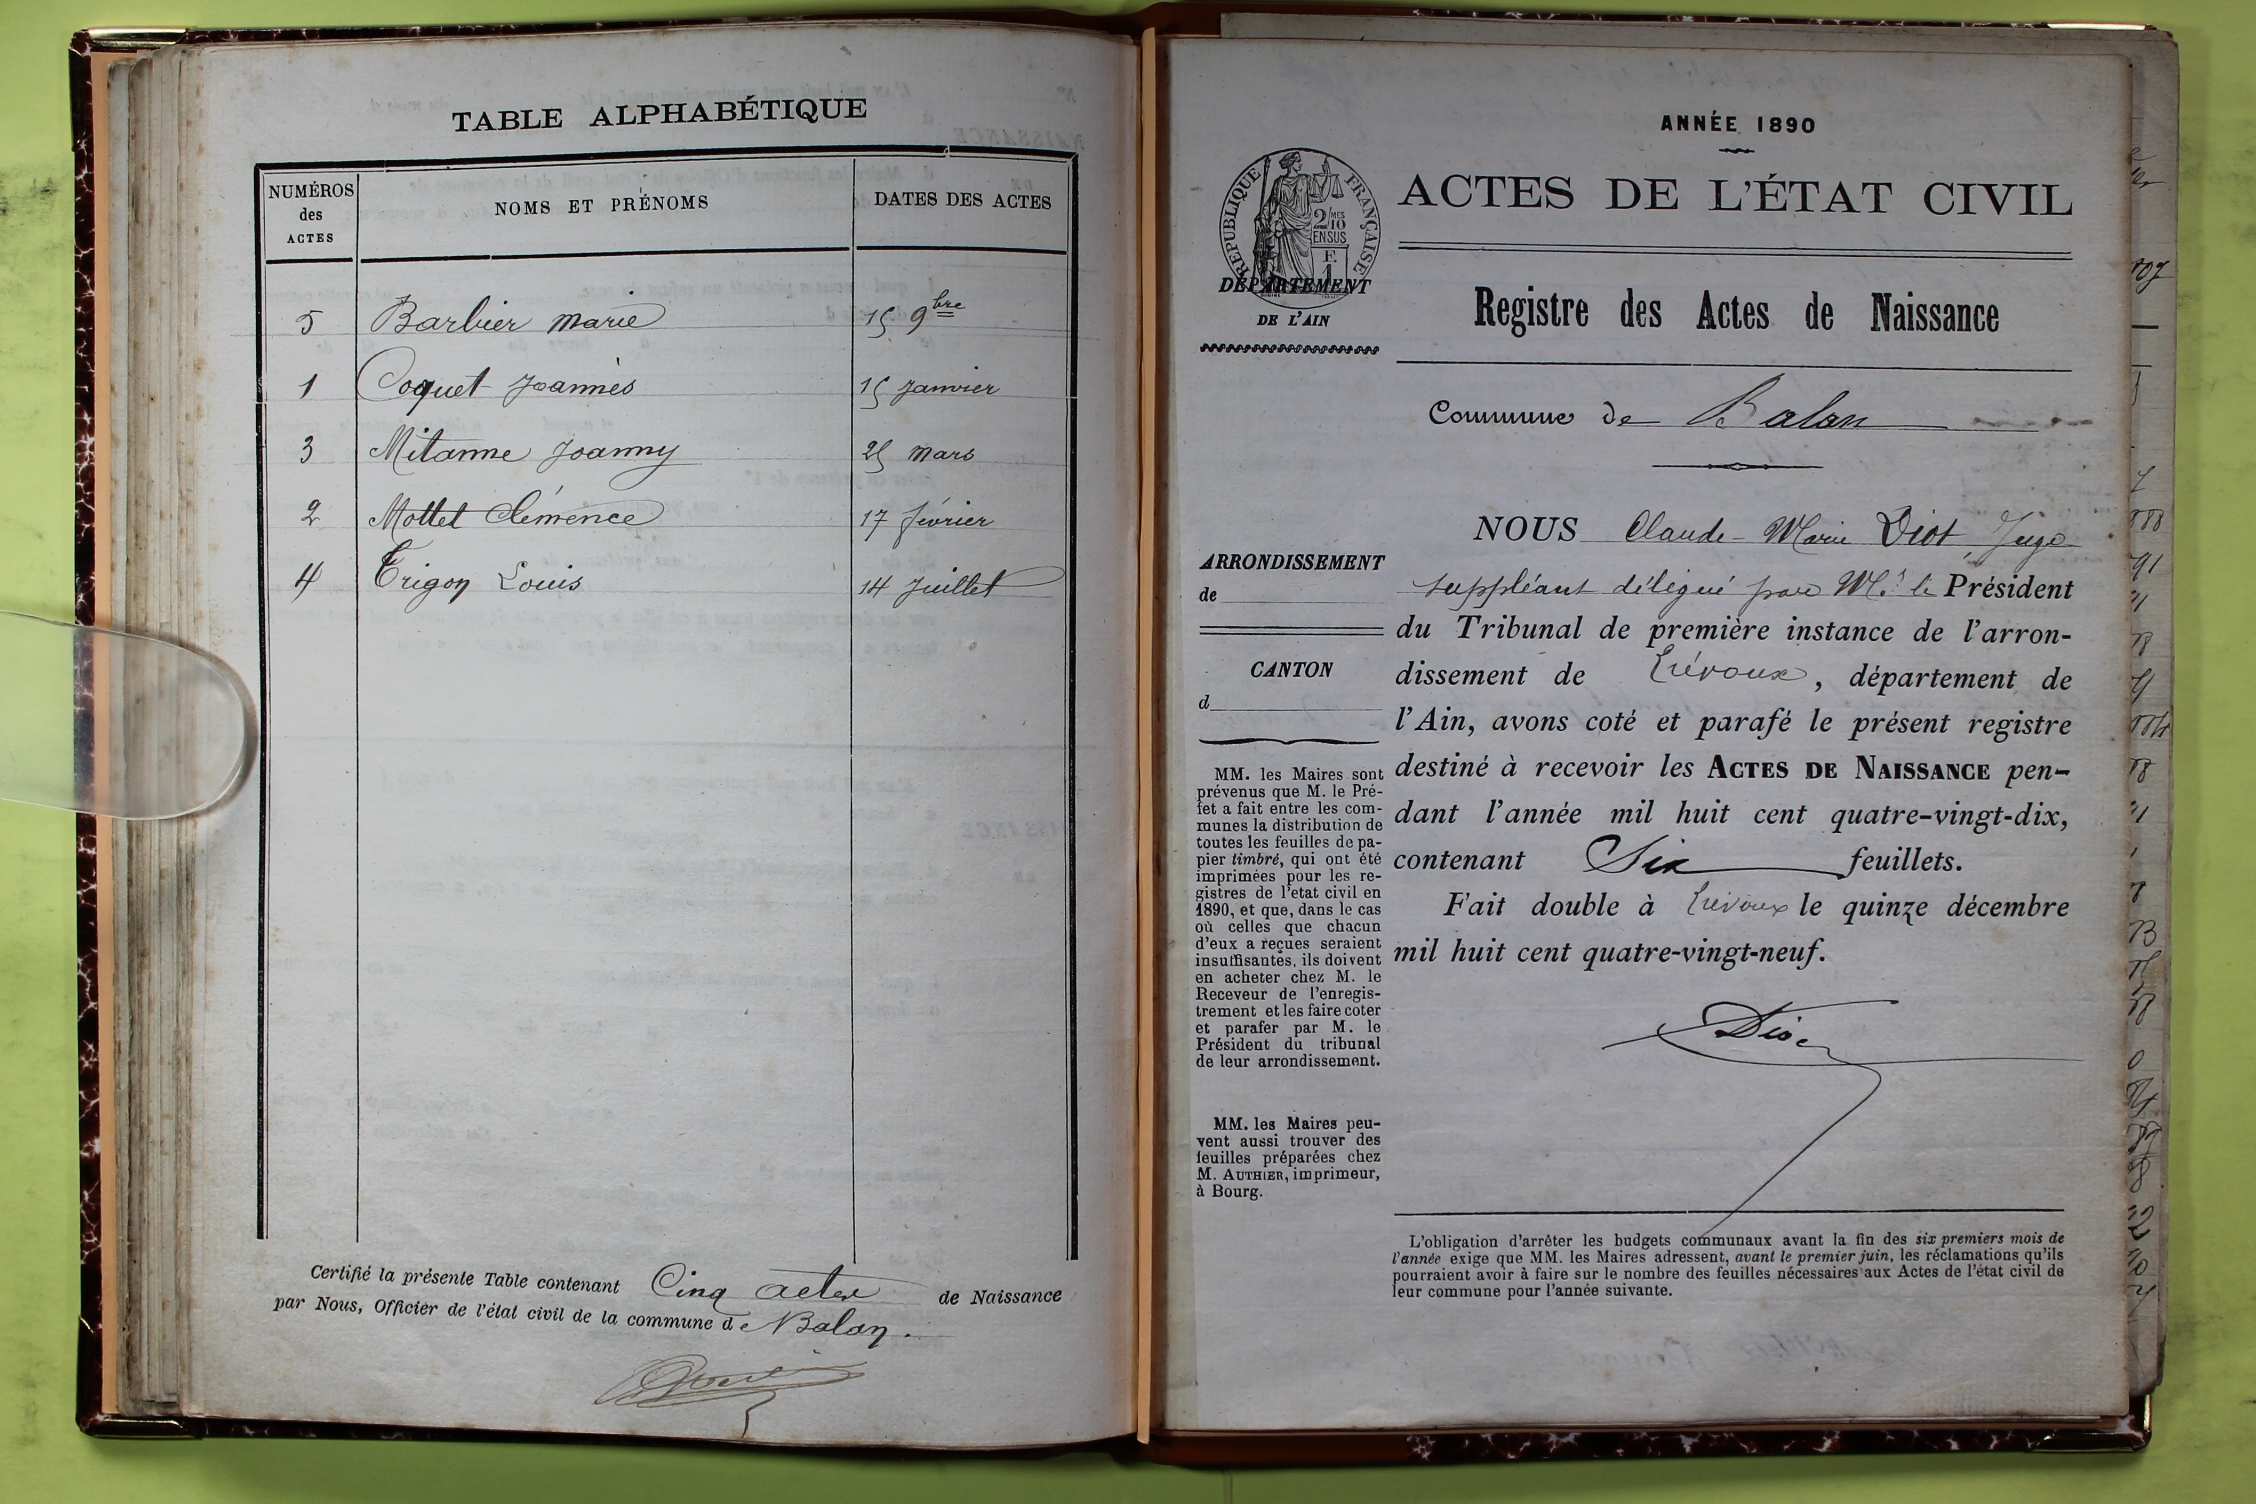 TABLE ALPHABÉTIQUE
NUMÉROS des ACTES
NOMS ET PRÉNOMS
DATES DES ACTES
5 Barbier Marie 15 9bre
1 Coquet Joannès 15 Janvier
3 Mitanne Joanny 25 Mars
2 Mollet Clémence 17 février
4 Trigon Louis 14 Juillet
Certifié la présente Table contenant Cinq actes de Naissance
par Nous, Officier de l'état civil de la commune de Balan.
ANNÉE 1890
RÉPUBLIQUE FRANÇAISE
2/10 MES
EN SUS
F.
1
DÉPARTEMENT
DE L'AIN
ACTES DE L'ÉTAT CIVIL
Registre des Actes de Naissance
Commune de Balan
ARRONDISSEMENT
de
CANTON
d
MM. les Maires sont
prévenus que M. le Pré-
fet a fait entre les com-
munes la distribution de
toutes les feuilles de pa-
pier timbré, qui ont été
imprimées pour les re-
gistres de l'état civil en
1890, et que, dans le cas
où celles que chacun
d'eux a reçues seraient
insuffisantes, ils doivent
en acheter chez M. le
Receveur de l'enregis-
trement et les faire coter
et parafer par M. le
Président du tribunal
de leur arrondissement.
MM. les Maires peu-
vent aussi trouver des
feuilles préparées chez
M. AUTHIER, imprimeur,
à Bourg.
NOUS Claude-Marie Diot, Juge
suppléant délégué par Mr. le Président
du Tribunal de première instance de l'arron-
dissement de Trévoux, département de
l'Ain, avons coté et parafé le présent registre
destiné à recevoir les ACTES DE NAISSANCE pen-
dant l'année mil huit cent quatre-vingt-dix,
contenant Six feuillets.
Fait double à Trévoux le quinze décembre
mil huit cent quatre-vingt-neuf.
Diot
L'obligation d'arrêter les budgets communaux avant la fin des six premiers mois de
l'année exige que MM. les Maires adressent, avant le premier juin, les réclamations qu'ils
pourraient avoir à faire sur le nombre des feuilles nécessaires aux Actes de l'état civil de
leur commune pour l'année suivante.